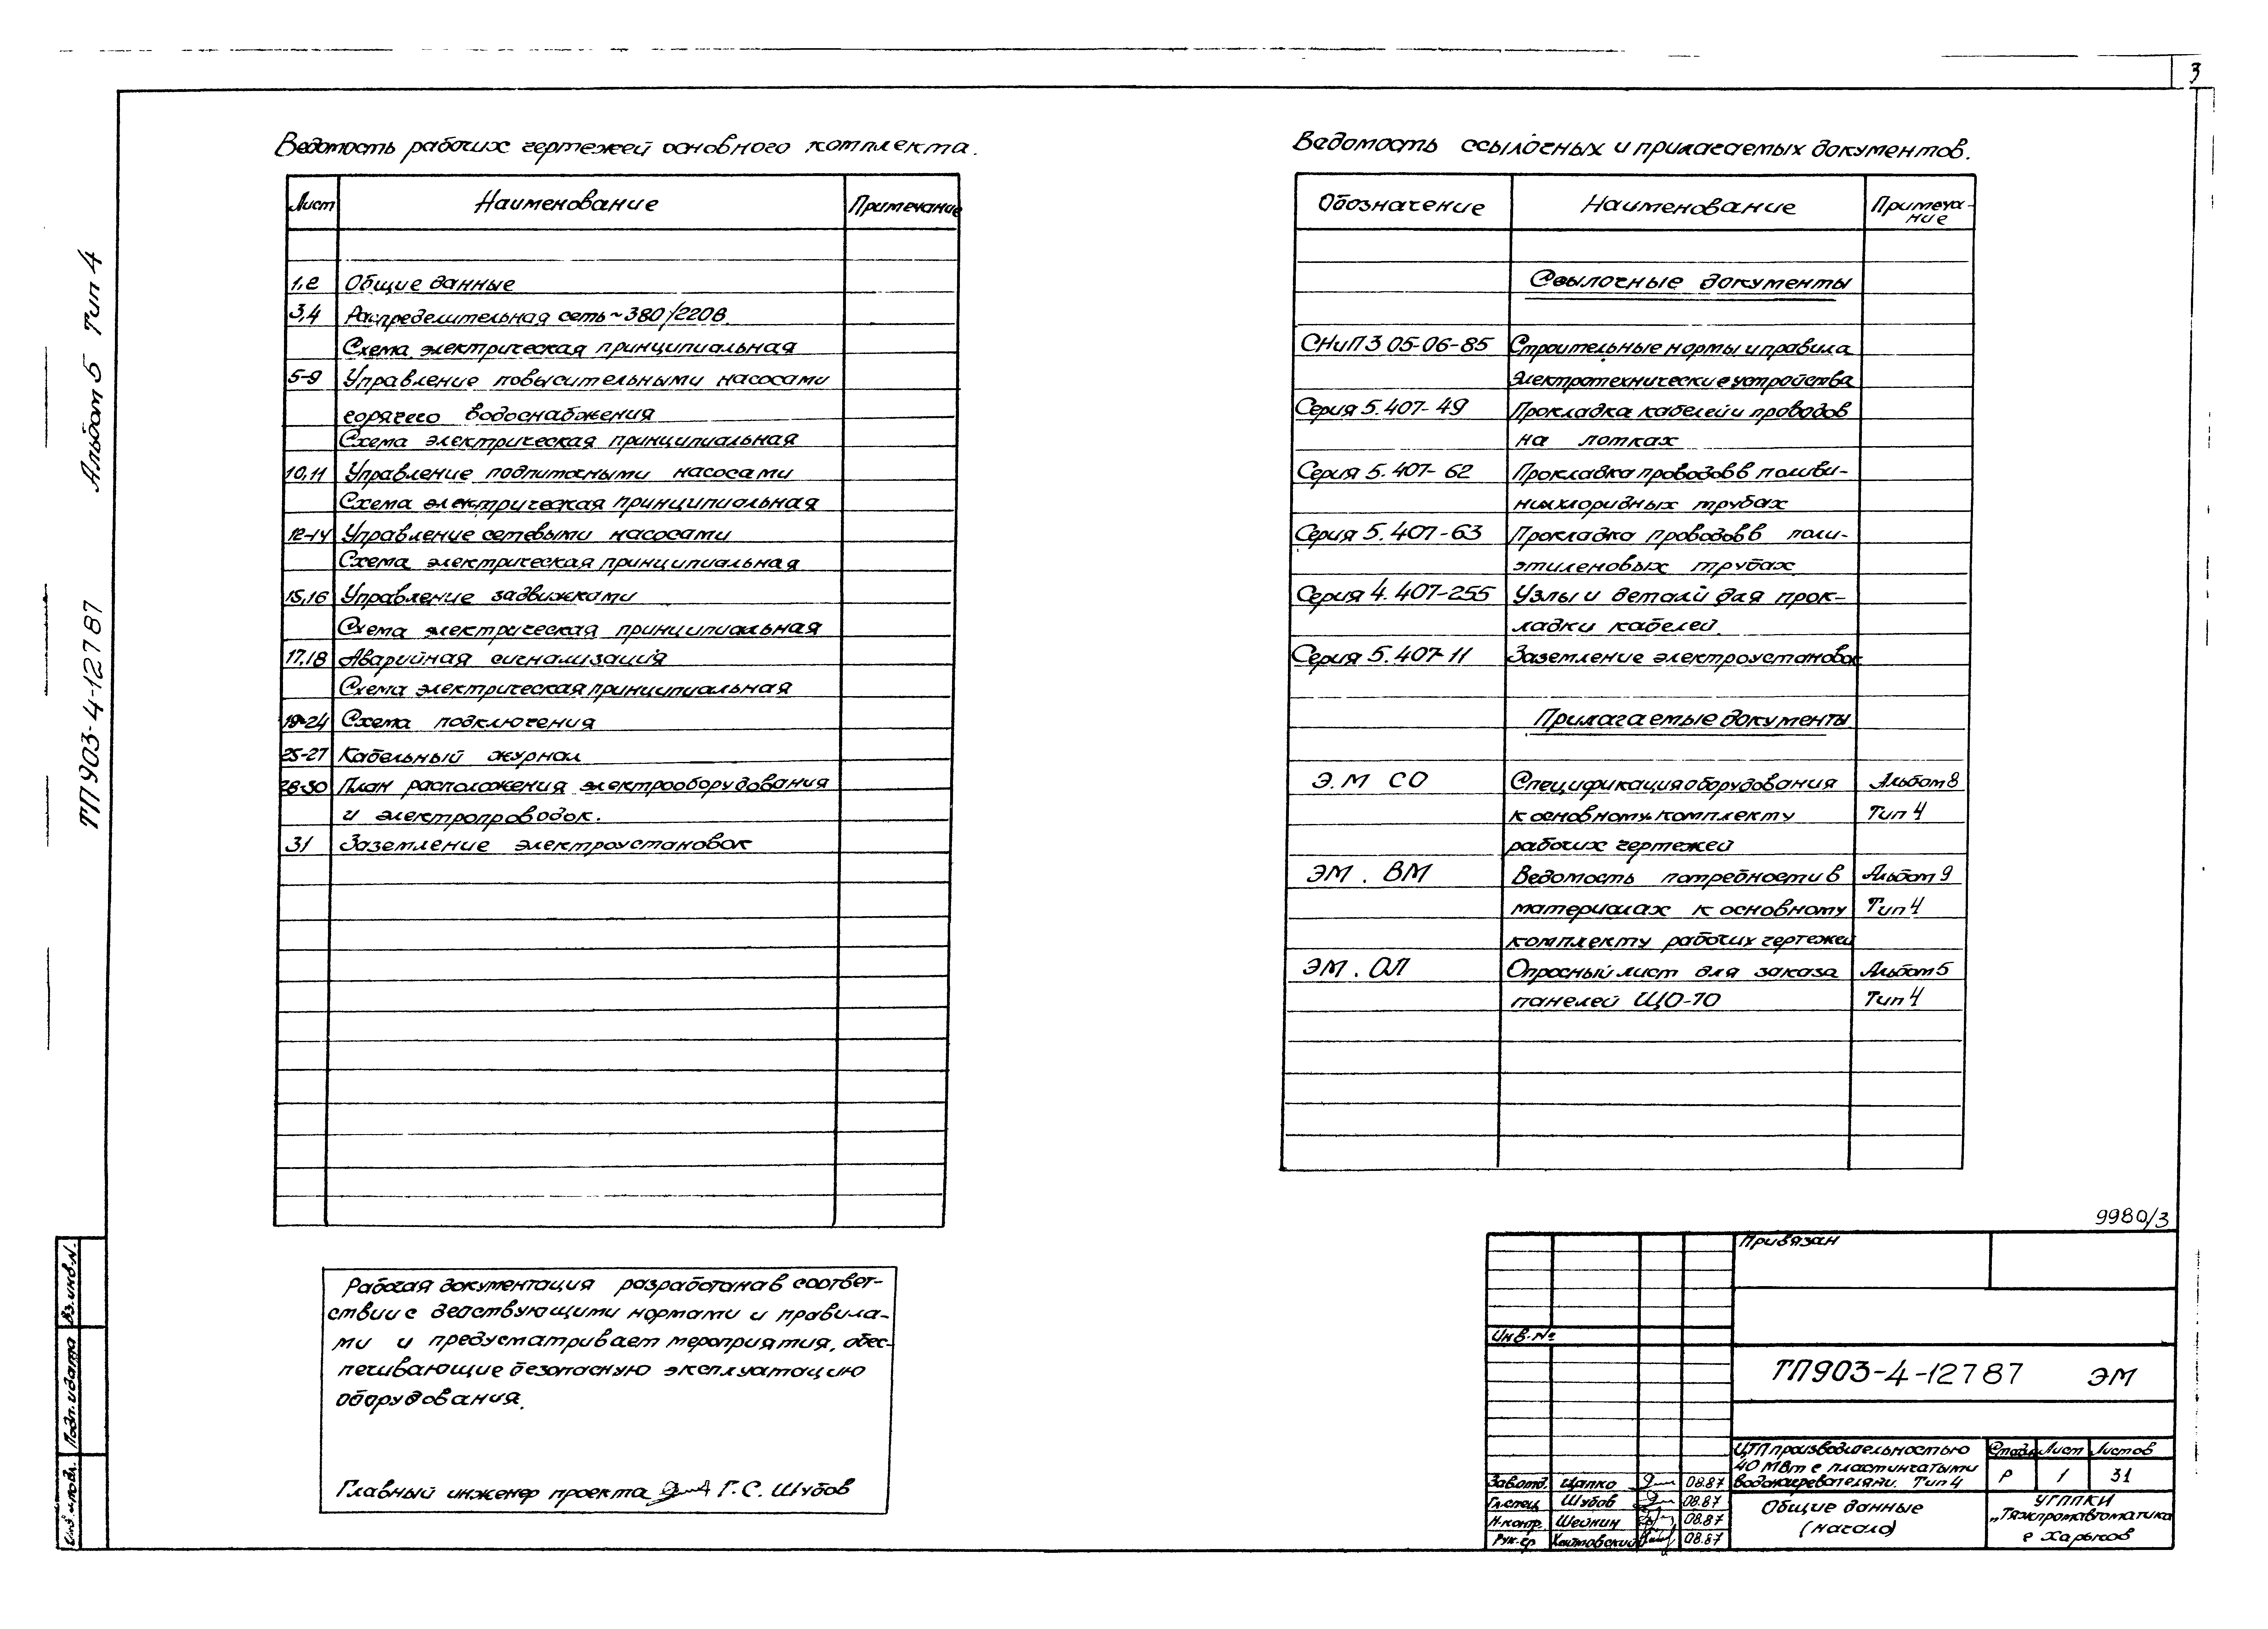 3
Ведомость рабочих чертежей основного комплекта.
Лист Наименование Примечание
1,2 Общие данные
3,4 Распределительная сеть ~380/220В.
Схема электрическая принципиальная
5-9 Управление повысительными насосами
горячего водоснабжения
Схема электрическая принципиальная
10,11 Управление подпиточными насосами
Схема электрическая принципиальная
12-14 Управление сетевыми насосами
Схема электрическая принципиальная
15,16 Управление задвижками
Схема электрическая принципиальная
17,18 Аварийная сигнализация
Схема электрическая принципиальная
19-24 Схема подключения
25-27 Кабельный журнал
28-30 План расположения электрооборудования
и электропроводок.
31 Заземление электроустановок
Ведомость ссылочных и прилагаемых документов.
Обозначение Наименование Примеча-
ние
Ссылочные документы
СНиП 3 05-06-85 Строительные нормы и правила
Электротехнические устройства
Серия 5.407-49 Прокладка кабелей и проводов
на лотках
Серия 5.407-62 Прокладка проводов в поливи-
нилхлоридных трубах
Серия 5.407-63 Прокладка проводов в поли-
этиленовых трубах
Серия 4.407-255 Узлы и детали для прок-
ладки кабелей.
Серия 5.407-11 Заземление электроустановок
Прилагаемые документы
Э.М СО Спецификация оборудования Альбом 8
к основному комплекту Тип 4
рабочих чертежей
ЭМ. ВМ Ведомость потребности в Альбом 9
материалах к основному Тип 4
комплекту рабочих чертежей
ЭМ. ОЛ Опросный лист для заказа Альбом 5
панелей ЩО-70 Тип 4
Рабочая документация разработана в соответ-
ствии с действующими нормами и правила-
ми и предусматривает мероприятия, обес-
печивающие безопасную эксплуатацию
оборудования.
Главный инженер проекта Г.С. Шубов
ТП 903-4-127 87 Альбом 5 Тип 4
Вз. инв. N.
Подп. и дата
Инв. N подл.
9980/3
Привязан
Инв. №
ТП903-4-127 87 ЭМ
ЦТП производительностью
40 МВт с пластинчатыми
водонагревателями. Тип 4
Стадия Лист Листов
Р 1 31
Зав.отд. Цапко 08.87
Гл.спец Шубов 08.87
Н.контр. Шейнин 08.87
Рук.гр 08.87
Общие данные
(начало)
УГППКИ
„Тяжпромавтоматика
г Харьков